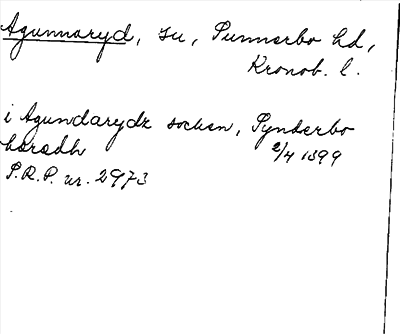 Agunnaryd, sn, Sunnerbo hd,
Kronob. l.
i Agundarydz sochen, Synderbo
hæradh 2/4 1399
S.R.P. nr. 2973